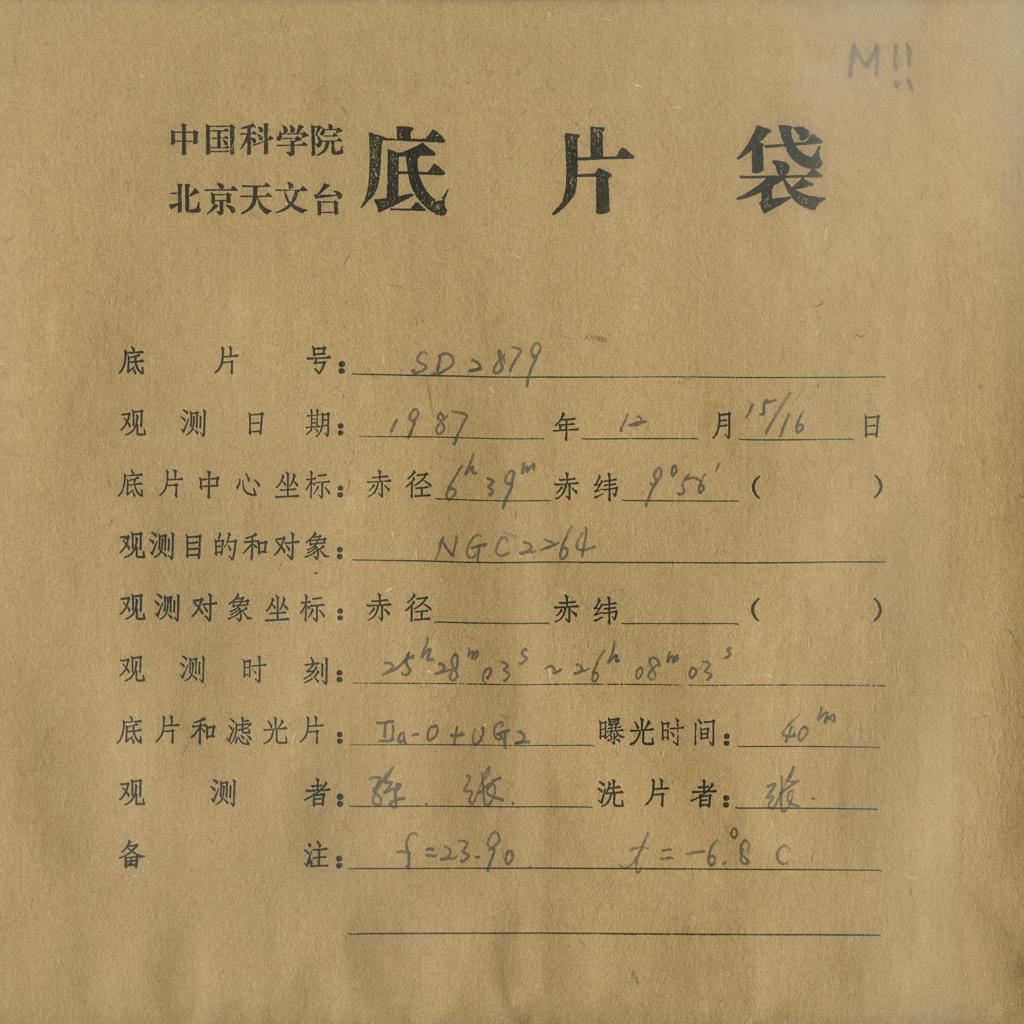 M!!
中国科学院
北京天文台
底片袋
底片号: SD2879
观测日期: 1987年12月15/16日
底片中心坐标: 赤径6ʰ39ᵐ赤纬9°56′( )
观测目的和对象: NGC2264
观测对象坐标: 赤径 赤纬 ( )
观测时刻: 25ʰ28ᵐ03ˢ~26ʰ08ᵐ03ˢ
底片和滤光片: IIa-O+UG2 曝光时间: 40ᵐ
观测者: 张. 洗片者: 张.
备注: f=23.90 t=-6.°8 C